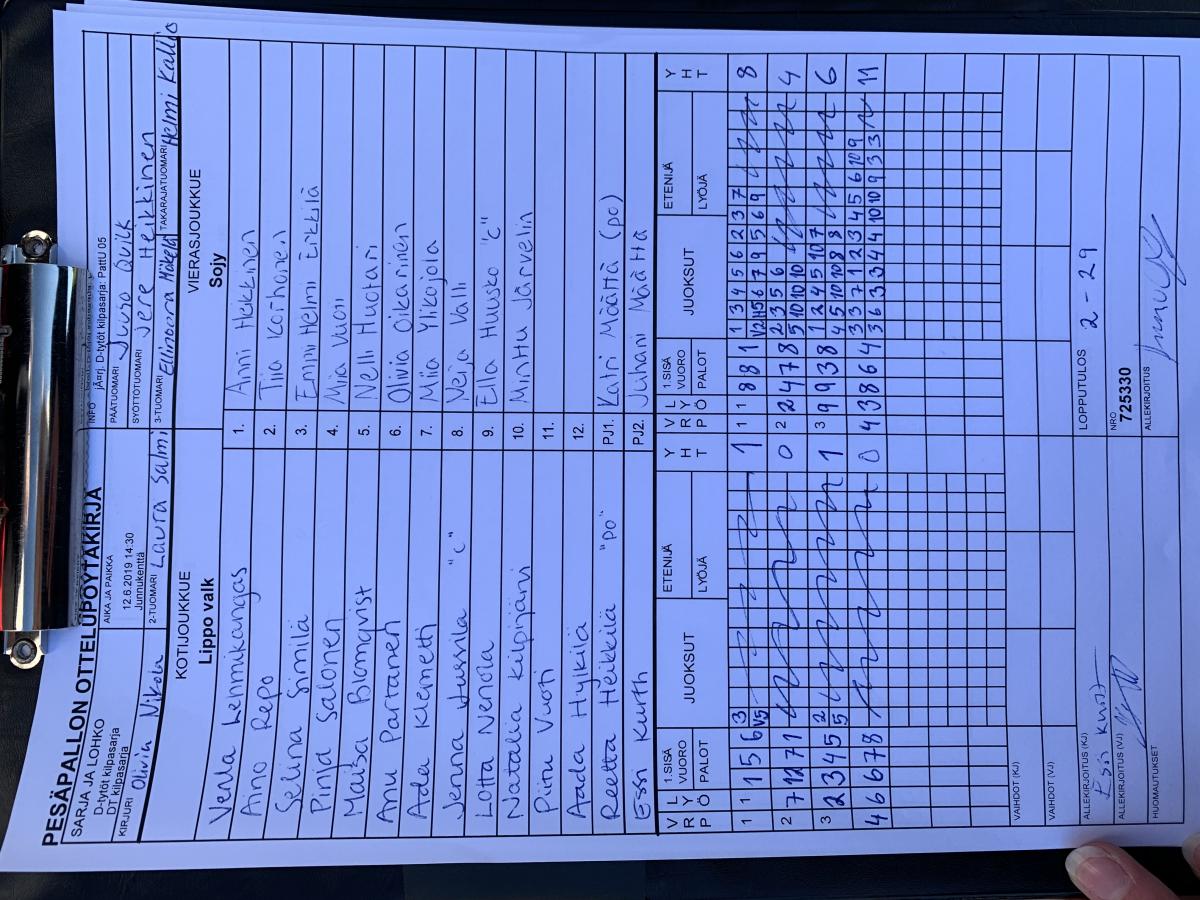 PESÄPALLON OTTELUPÖYTÄKIRJA
SARJA JA LOHKO
D-tytöt kilpasarja
DT kilpasarja
AIKA JA PAIKKA
12.6.2019 14:30
Junnukenttä
INFO jÃ¤rj. D-tytöt kilpasarja: PattU 05
PÄÄTUOMARI
SYÖTTÖTUOMARI Jere Heikkinen
KIRJURI Olivia Nikola
2-TUOMARI Laura Salmi
3-TUOMARI Ellinoora Mäkelä
TAKARAJATUOMARI Helmi Kallio
KOTIJOUKKUE
Lippo valk
VIERASJOUKKUE
Sojy
Venla Lehmikangas 1. Anni Heikkinen
Aino Repo 2. Tiia Korhonen
Selina Similä 3. Emmi Helmi Eikkilä
Pinja Salonen 4. Miia Vuori
Maisa Blomqvist 5. Nelli Huotari
Anu Partanen 6. Olivia Oikarinen
Ada Klemetti 7. Miia Ylikojola
Jenna Jussila "c" 8. Neija Valli
Lotta Nenola 9. Ella Huusko "c"
Natalia Kilpijärvi 10. Minttu Järvelin
Piitu Vuoti 11.
Aada Hylkilä 12.
Reetta Heikkilä "po" PJ1. Kaini Määttä (po)
Essi Kurth PJ2. Juhani Määttä
V R P L Y Ö 1.SISÄ VUORO PALOT JUOKSUT ETENIJÄ LYÖJÄ Y H T V R P L Y Ö 1.SISÄ VUORO PALOT JUOKSUT ETENIJÄ LYÖJÄ Y H T
1 1 1 5 6 3 1 1 1 8 8 1 1 3 4 5 6 2 3 7 8
V5 V2 H5 6 7 9 5 6 9
2 7 12 7 1 0 2 2 4 7 8 2 3 5 6 4
5 10 10 10
3 2 3 4 5 2 1 3 9 9 3 8 1 2 4 5 10 7 6
5 4 5 10 10 8 8
4 6 6 7 8 0 4 3 8 6 4 3 3 7 1 2 3 4 5 6 10 9 11
3 6 3 3 4 4 10 10 9 3 3
VAIHDOT (KJ)
VAIHDOT (VJ)
ALLEKIRJOITUS (KJ) Essi Kurth
LOPPUTULOS 2 - 29
ALLEKIRJOITUS (VJ)
NRO
725330
HUOMAUTUKSET
ALLEKIRJOITUS